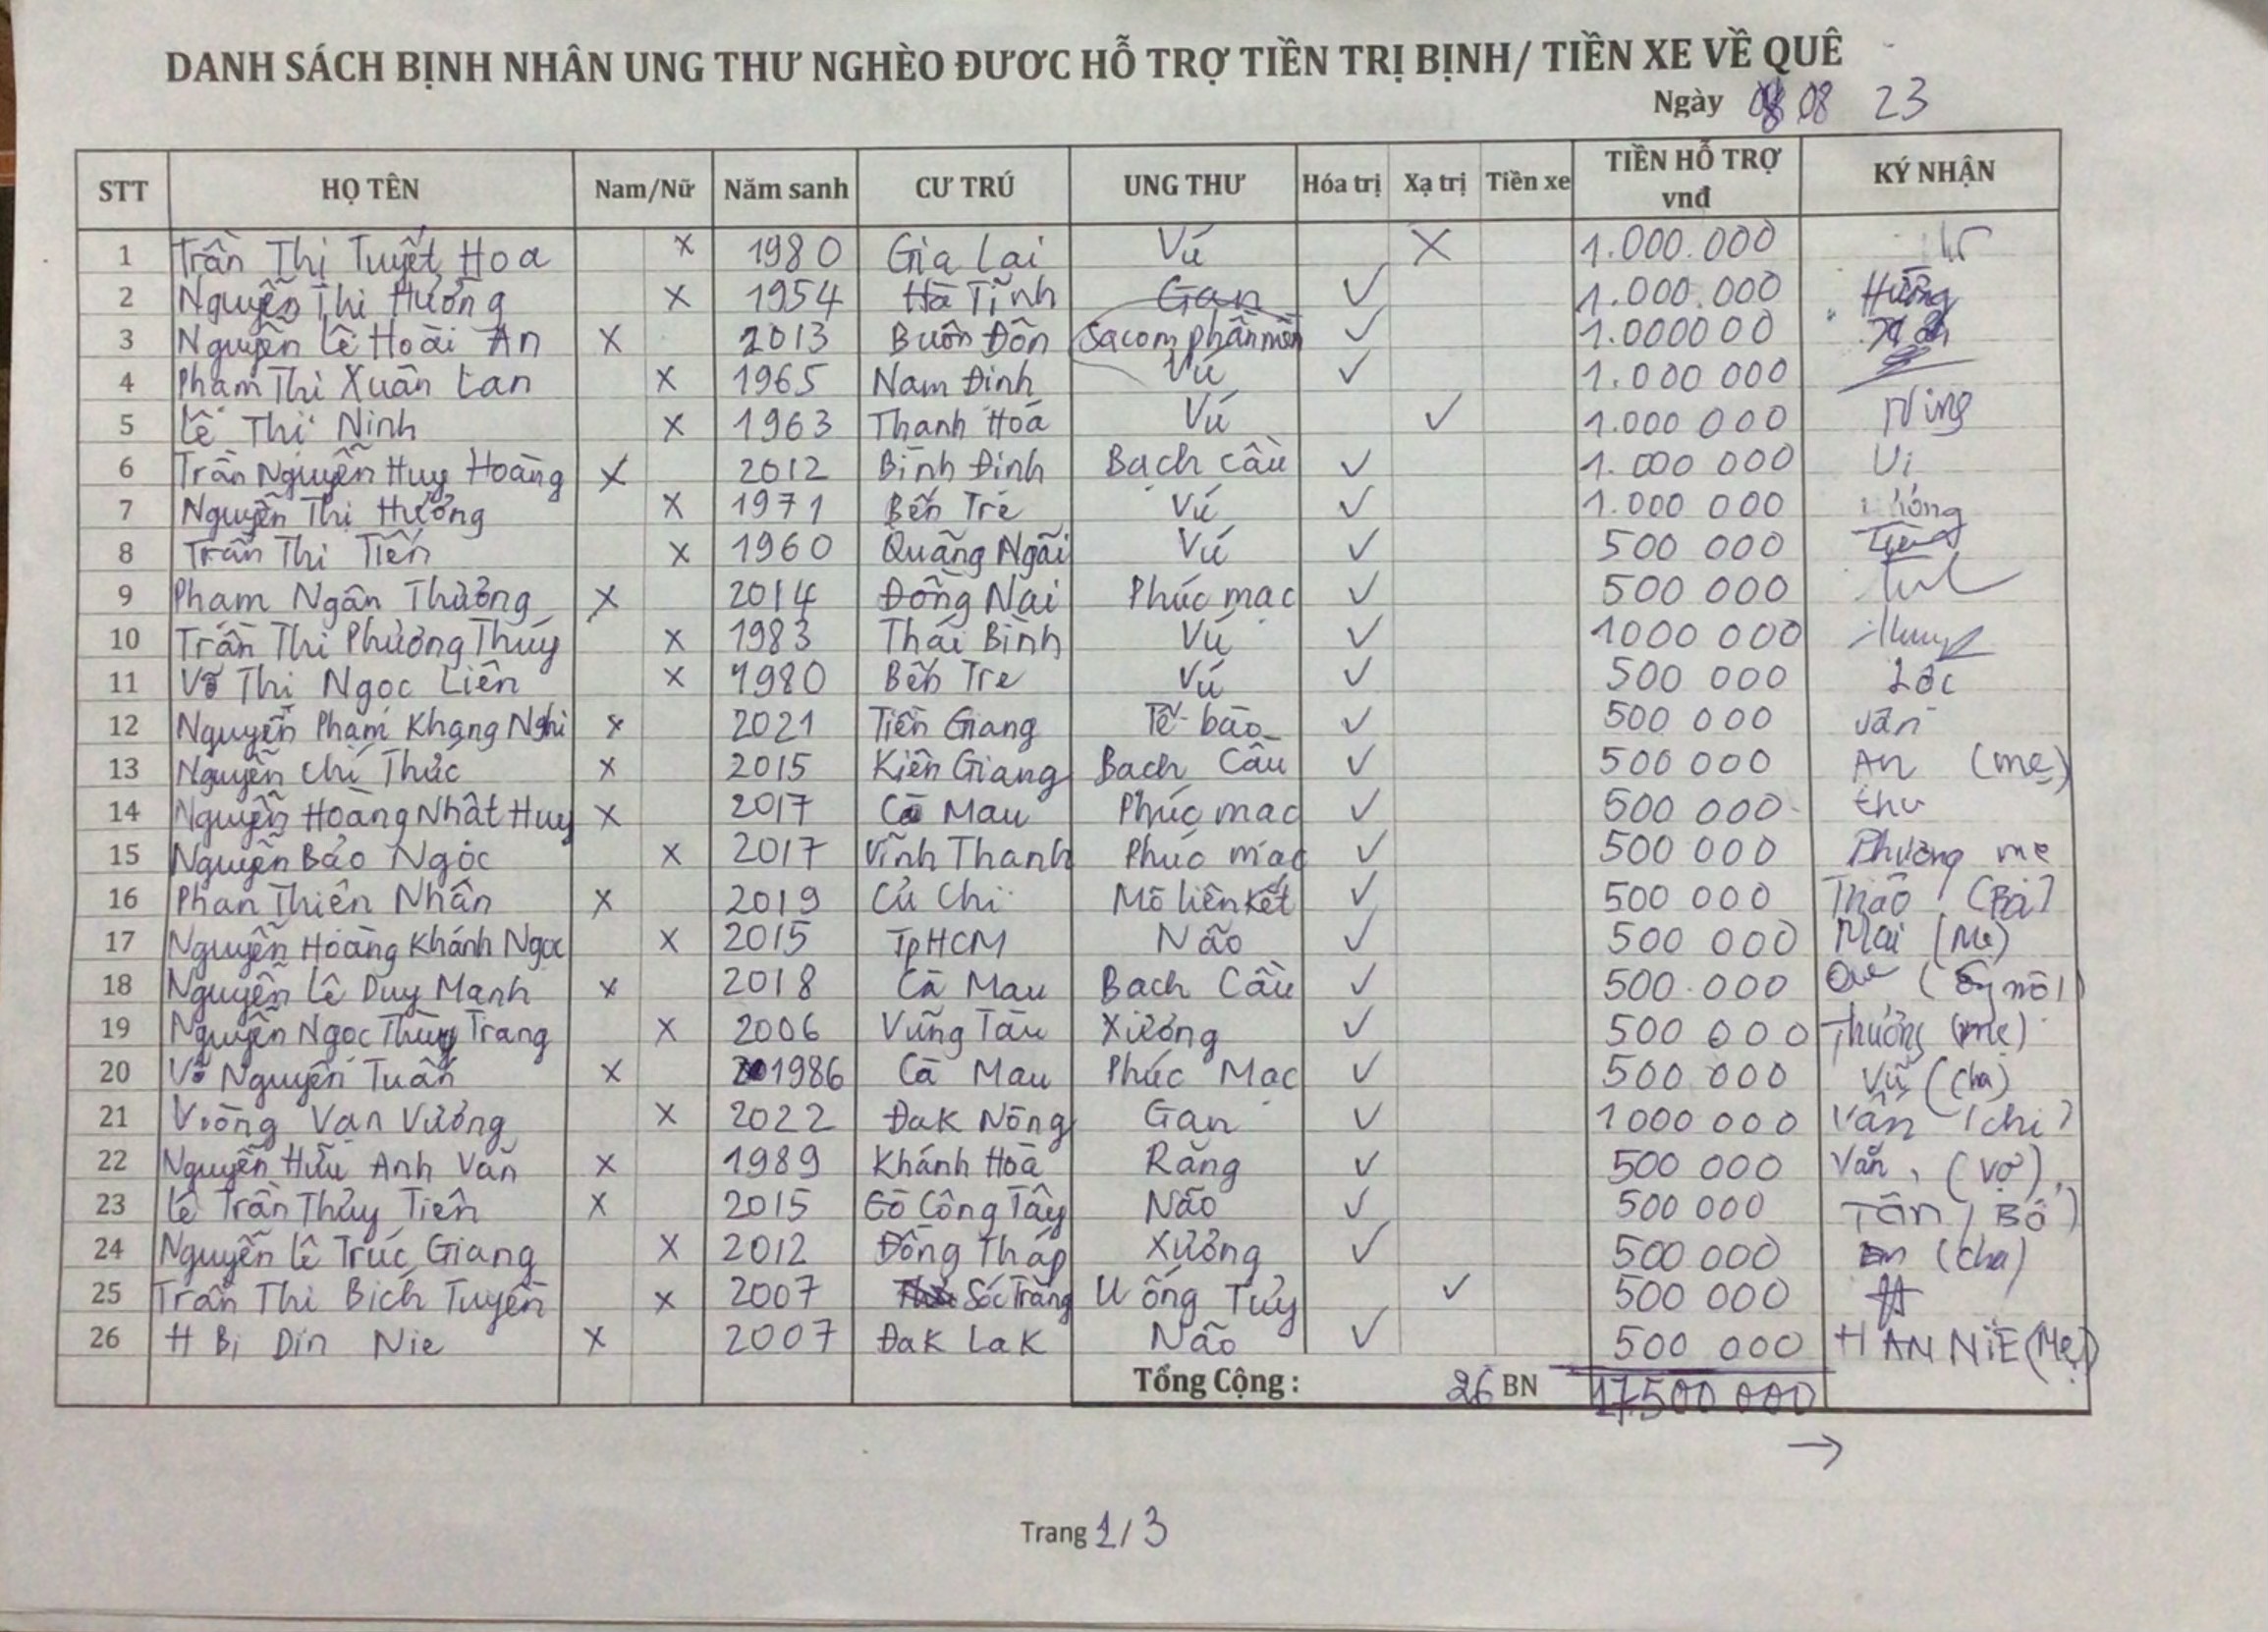 DANH SÁCH BỊNH NHÂN UNG THƯ NGHÈO ĐƯƠC HỖ TRỢ TIỀN TRỊ BỊNH/ TIỀN XE VỀ QUÊ
Ngày 08 08 23
STT HỌ TÊN Nam/Nữ Năm sanh CƯ TRÚ UNG THƯ Hóa trị Xạ trị Tiền xe TIỀN HỖ TRỢ vnđ KÝ NHẬN
1 Trần Thị Tuyết Hoa X 1980 Gia Lai Vú X 1.000.000
2 Nguyễn Thị Hường X 1954 Hà Tĩnh Gan ✓ 1.000.000 Hường
3 Nguyễn Lê Hoài An X 2013 Buôn Đôn Sacom phần mền ✓ 1.000000
4 Phạm Thị Xuân Lan X 1965 Nam Định Vú ✓ 1.000 000
5 Lê Thị Ninh X 1963 Thanh Hoá Vú ✓ 1.000 000 Ning
6 Trần Nguyễn Huy Hoàng X 2012 Bình Định Bạch cầu ✓ 1.000 000 Vi
7 Nguyễn Thị Hưởng X 1971 Bến Tre Vú ✓ 1.000 000
8 Trần Thị Tiến X 1960 Quãng Ngãi Vú ✓ 500 000 Tiến
9 Phạm Ngân Thưởng X 2014 Đồng Nai Phúc mạc ✓ 500 000
10 Trần Thị Phương Thúy X 1983 Thái Bình Vú ✓ 1000 000
11 Võ Thị Ngọc Liên X 1980 Bến Tre Vú ✓ 500 000 Lộc
12 Nguyễn Phạm Khang Nghi X 2021 Tiền Giang Tế bào ✓ 500 000 Vân
13 Nguyễn Chí Thức X 2015 Kiên Giang Bạch Cầu ✓ 500 000 An (mẹ)
14 Nguyễn Hoàng Nhật Huy X 2017 Cà Mau Phúc mạc ✓ 500 000 thu
15 Nguyễn Bảo Ngọc X 2017 Vĩnh Thanh Phúc mạc ✓ 500 000 Phương mẹ
16 Phan Thiên Nhân X 2019 Củ Chi Mô liên kết ✓ 500 000 Thảo (Bà)
17 Nguyễn Hoàng Khánh Ngọc X 2015 TpHCM Não ✓ 500 000 Mai (Mẹ)
18 Nguyễn Lê Duy Mạnh X 2018 Cà Mau Bạch Cầu ✓ 500.000 nội)
19 Nguyễn Ngọc Thùy Trang X 2006 Vũng Tàu Xương ✓ 500 000 Thương (mẹ)
20 Võ Nguyễn Tuấn X 1986 Cà Mau Phúc Mạc ✓ 500 000 Vũ (cha)
21 Vòòng Vạn Vương X 2022 Đak Nông Gan ✓ 1000 000 Vân (chị)
22 Nguyễn Hữu Anh Văn X 1989 Khánh Hoà Răng ✓ 500 000 Vân, (vợ)
23 Lê Trần Thủy Tiên X 2015 Gò Công Tây Não ✓ 500 000 Tân (Bố)
24 Nguyễn Lê Trúc Giang X 2012 Đồng Tháp Xương ✓ 500 000 (cha)
25 Trần Thị Bích Tuyền X 2007 Sóc Trăng U ống Tủy ✓ 500 000
26 H Bi Din Nie X 2007 Đak Lak Não ✓ 500 000 H HAN NIÊ (Mẹ)
Tổng Cộng: 26 BN 17500 000
→
Trang 1/3